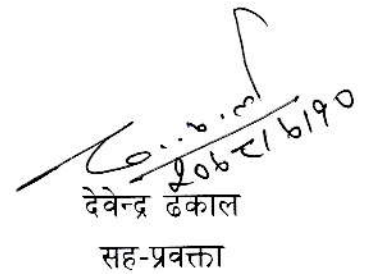 २०७८।७।१०
देवेन्द्र ढकाल
सह-प्रवक्ता